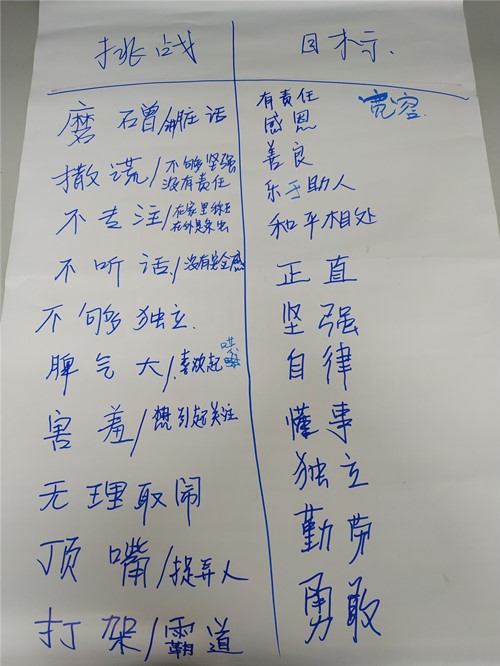 挑战
磨石曾/讲脏话
撒谎/不够坚强
没有责任
不专注/在家里称王
在外是朱虫
不听话/没有安全感
不够独立.
脾气大/喜欢起哄
害羞/想引起关注
无理取闹
顶嘴/捉弄人
打架/霸道
目标.
有责任 宽容
感恩
善良
乐于助人
和平相处
正直
坚强
自律
懂事
独立
勤劳
勇敢